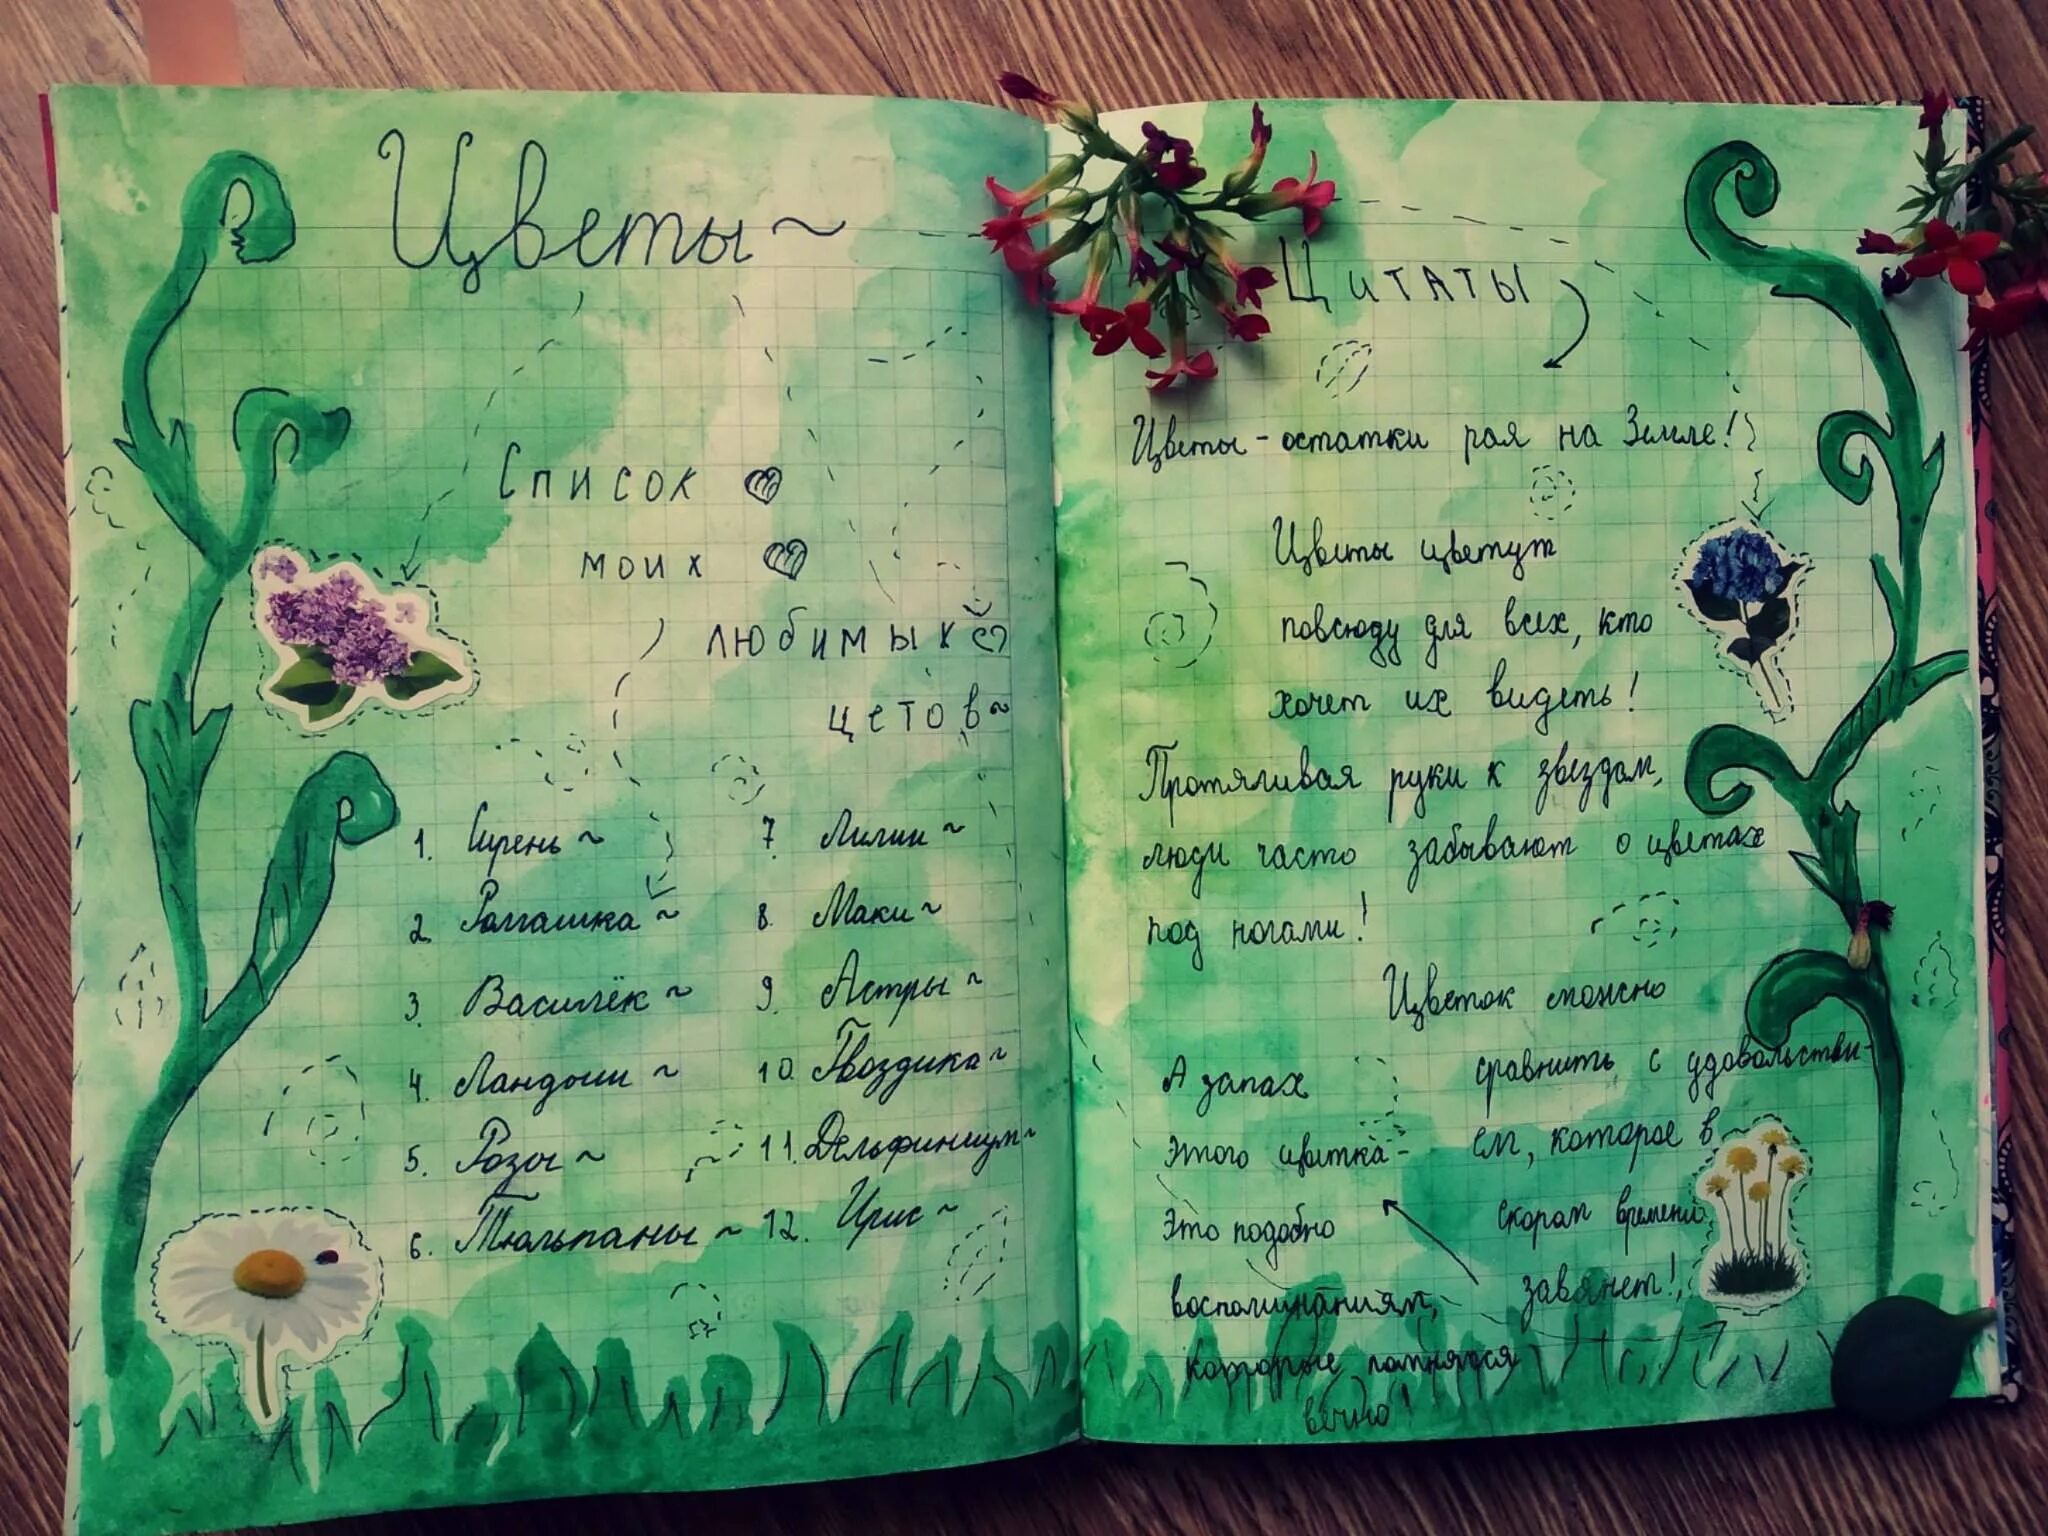 Цветы~
Список
моих
любимых
цетов~
1. Сирень~
2. Ромашка~
3. Василёк~
4. Ландыши~
5. Розы~
6. Тюльпаны~
7. Лилии~
8. Маки~
9. Астры~
10. Гвоздика~
11. Дельфиниум~
12. Ирис~
Цитаты
Цветы - остатки рая на Земле!
Цветы цветут
повсюду для всех, кто
хочет их видеть!
Протягивая руки к звездам,
люди часто забывают о цветах
под ногами!
Цветок можно
сравнить с удовольстви-
ем, которое в
скором времени
завянет!
А запах
этого цветка-
это подобно
воспоминаниям,
которые помнятся
вечно!